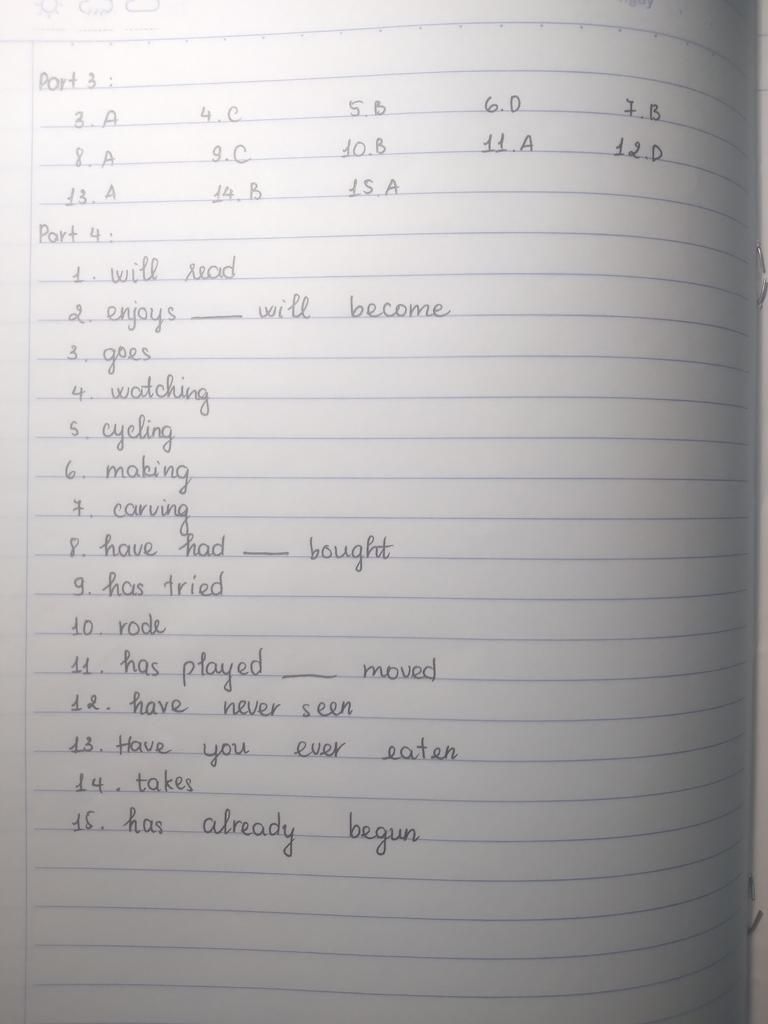 Part 3 :
3. A 4. C 5. B 6. D 7. B
8. A 9. C 10. B 11. A 12. D
13. A 14. B 15. A
Part 4 :
1. will read
2. enjoys ___ will become
3. goes
4. watching
5. cycling
6. making
7. carving
8. have had ___ bought
9. has tried
10. rode
11. has played ___ moved
12. have never seen
13. Have you ever eaten
14. takes
15. has already begun